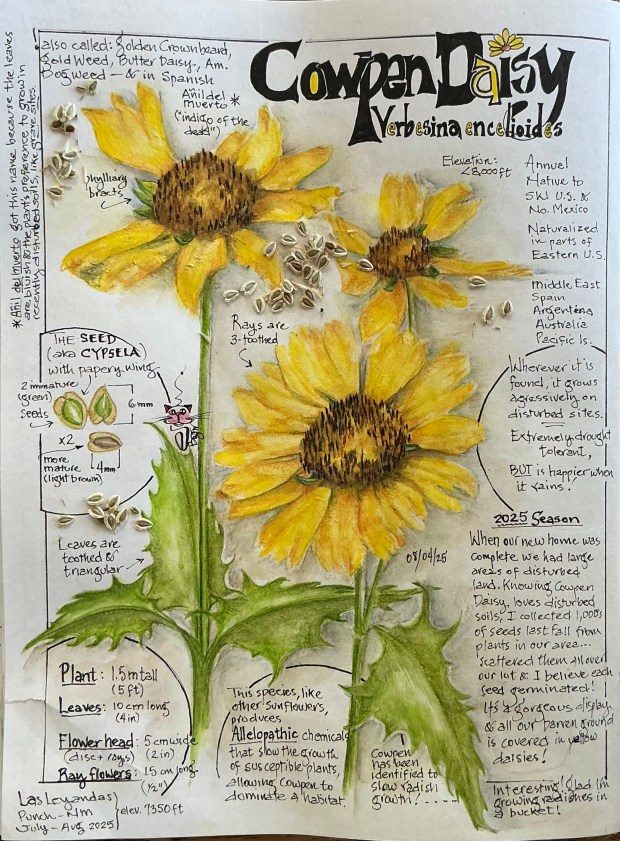 *Añil del Muerto got this name because the leaves
are bluish & the plant's preference to grow in
recently disturbed soils, like grave sites.
also called: Golden Crownbeard,
Gold Weed, Butter Daisy, Am.
Dogweed — & in Spanish
Añil del
Muerto *
("indigo of the
dead")
Cowpen Daisy
Verbesina encelioides
phyllary
bracts
Elevation:
<8,000ft
Annual
Native to
SW U.S. &
No. Mexico
Naturalized
in parts of
Eastern U.S.
Middle East
Spain
Argentina
Australia
Pacific Is.
Rays are
3-toothed
THE SEED
(aka CYPSELA)
with papery wing
2 immature
(green)
seeds
6mm
x2
more
mature
(light brown)
4mm
Wherever it is
found, it grows
aggressively on
disturbed sites.
Extremely drought
tolerant,
BUT is happier when
it rains!
Leaves are
toothed &
triangular
08/04/25
2025 Season
When our new home was
complete we had large
areas of disturbed
land. Knowing Cowpen
Daisy loves disturbed
soils, I collected 1,000's
of seeds last fall from
plants in our area...
scattered them all over
our lot & I believe each
seed germinated!
It's a gorgeous display
& all our barren ground
is covered in yellow
daisies!
Plant: 1.5m tall
(5 ft)
Leaves: 10 cm long
(4 in)
Flower head: 5 cm wide
(disc + rays) (2 in)
Ray flowers: 1.5 cm long
(½")
This species, like
other sunflowers,
produces
Allelopathic chemicals
that slow the growth
of susceptible plants,
allowing Cowpen to
dominate a habitat.
Cowpen
has been
identified to
slow radish
growth!----
Interesting! Glad I'm
growing radishes in
a bucket!
Las Leyandas
Punch - NM
July - Aug 2025
elev. 7350 ft